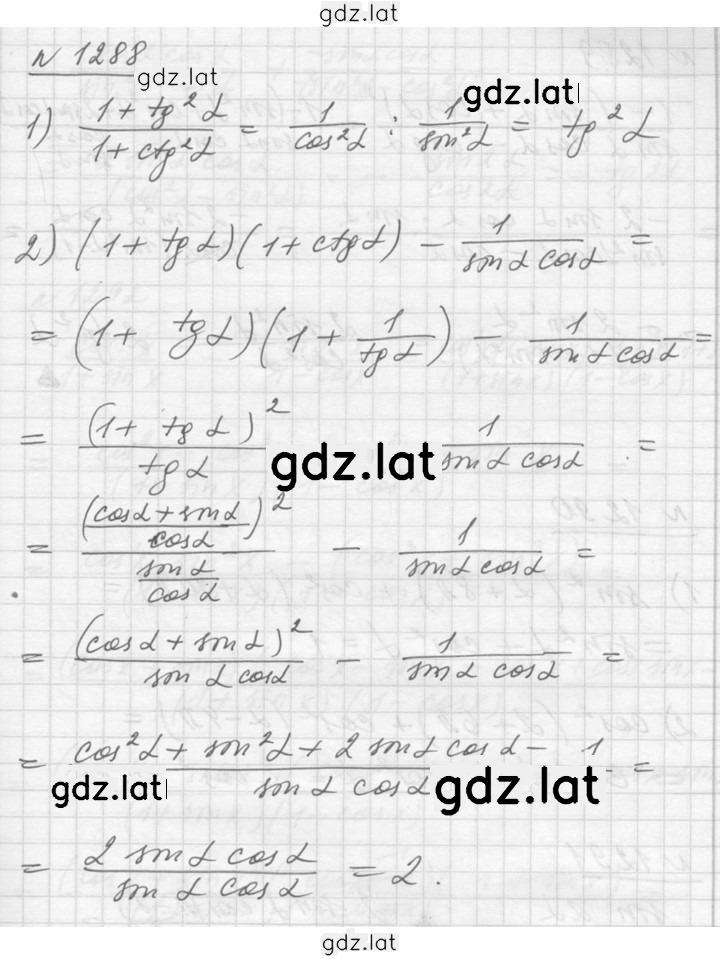 gdz.lat
n 1288
gdz.lat
gdz.lat
1) (1 + tg²α)/(1 + ctg²α) = 1/cos²α : 1/sin²α = tg²α
2) (1 + tgα)(1 + ctgα) − 1/(sinα cosα) =
= (1 + tgα)(1 + 1/tgα) − 1/(sinα cosα) =
= (1 + tgα)²/tgα gdz.lat 1/(sinα cosα) =
= ((cosα + sinα)/cosα)²/(sinα/cosα) − 1/(sinα cosα) =
= (cosα + sinα)²/(sinα cosα) − 1/(sinα cosα) =
= (cos²α + sin²α + 2 sinα cosα − 1)/(sinα cosα) =
gdz.lat
gdz.lat
= (2 sinα cosα)/(sinα cosα) = 2.
gdz.lat